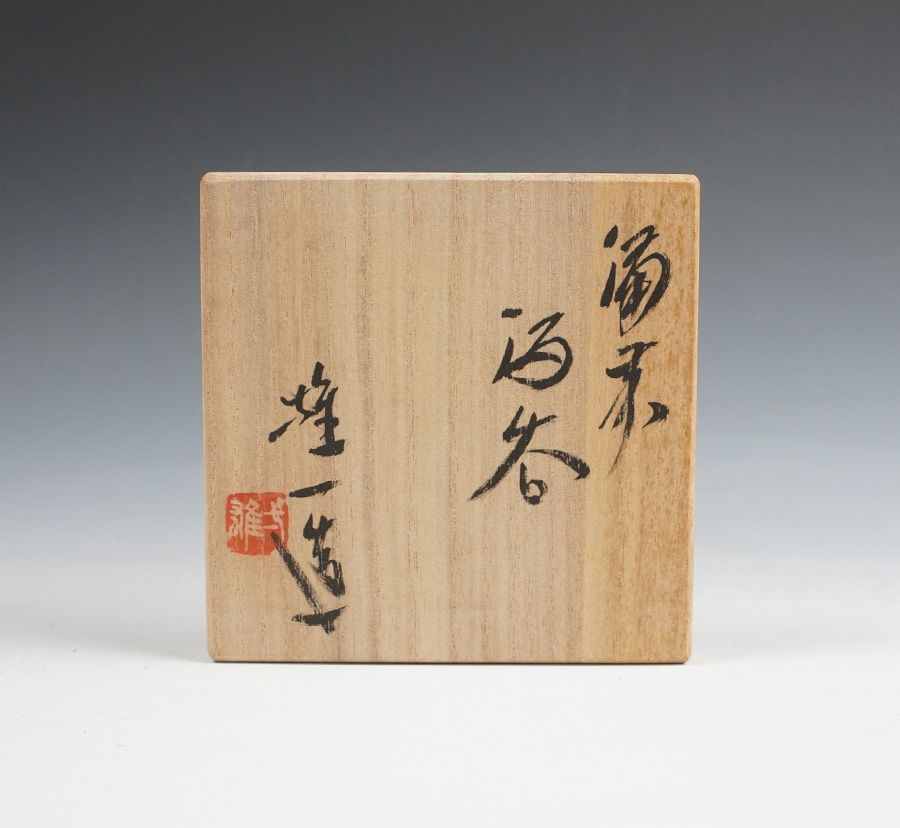 備前
酒呑
雄一造